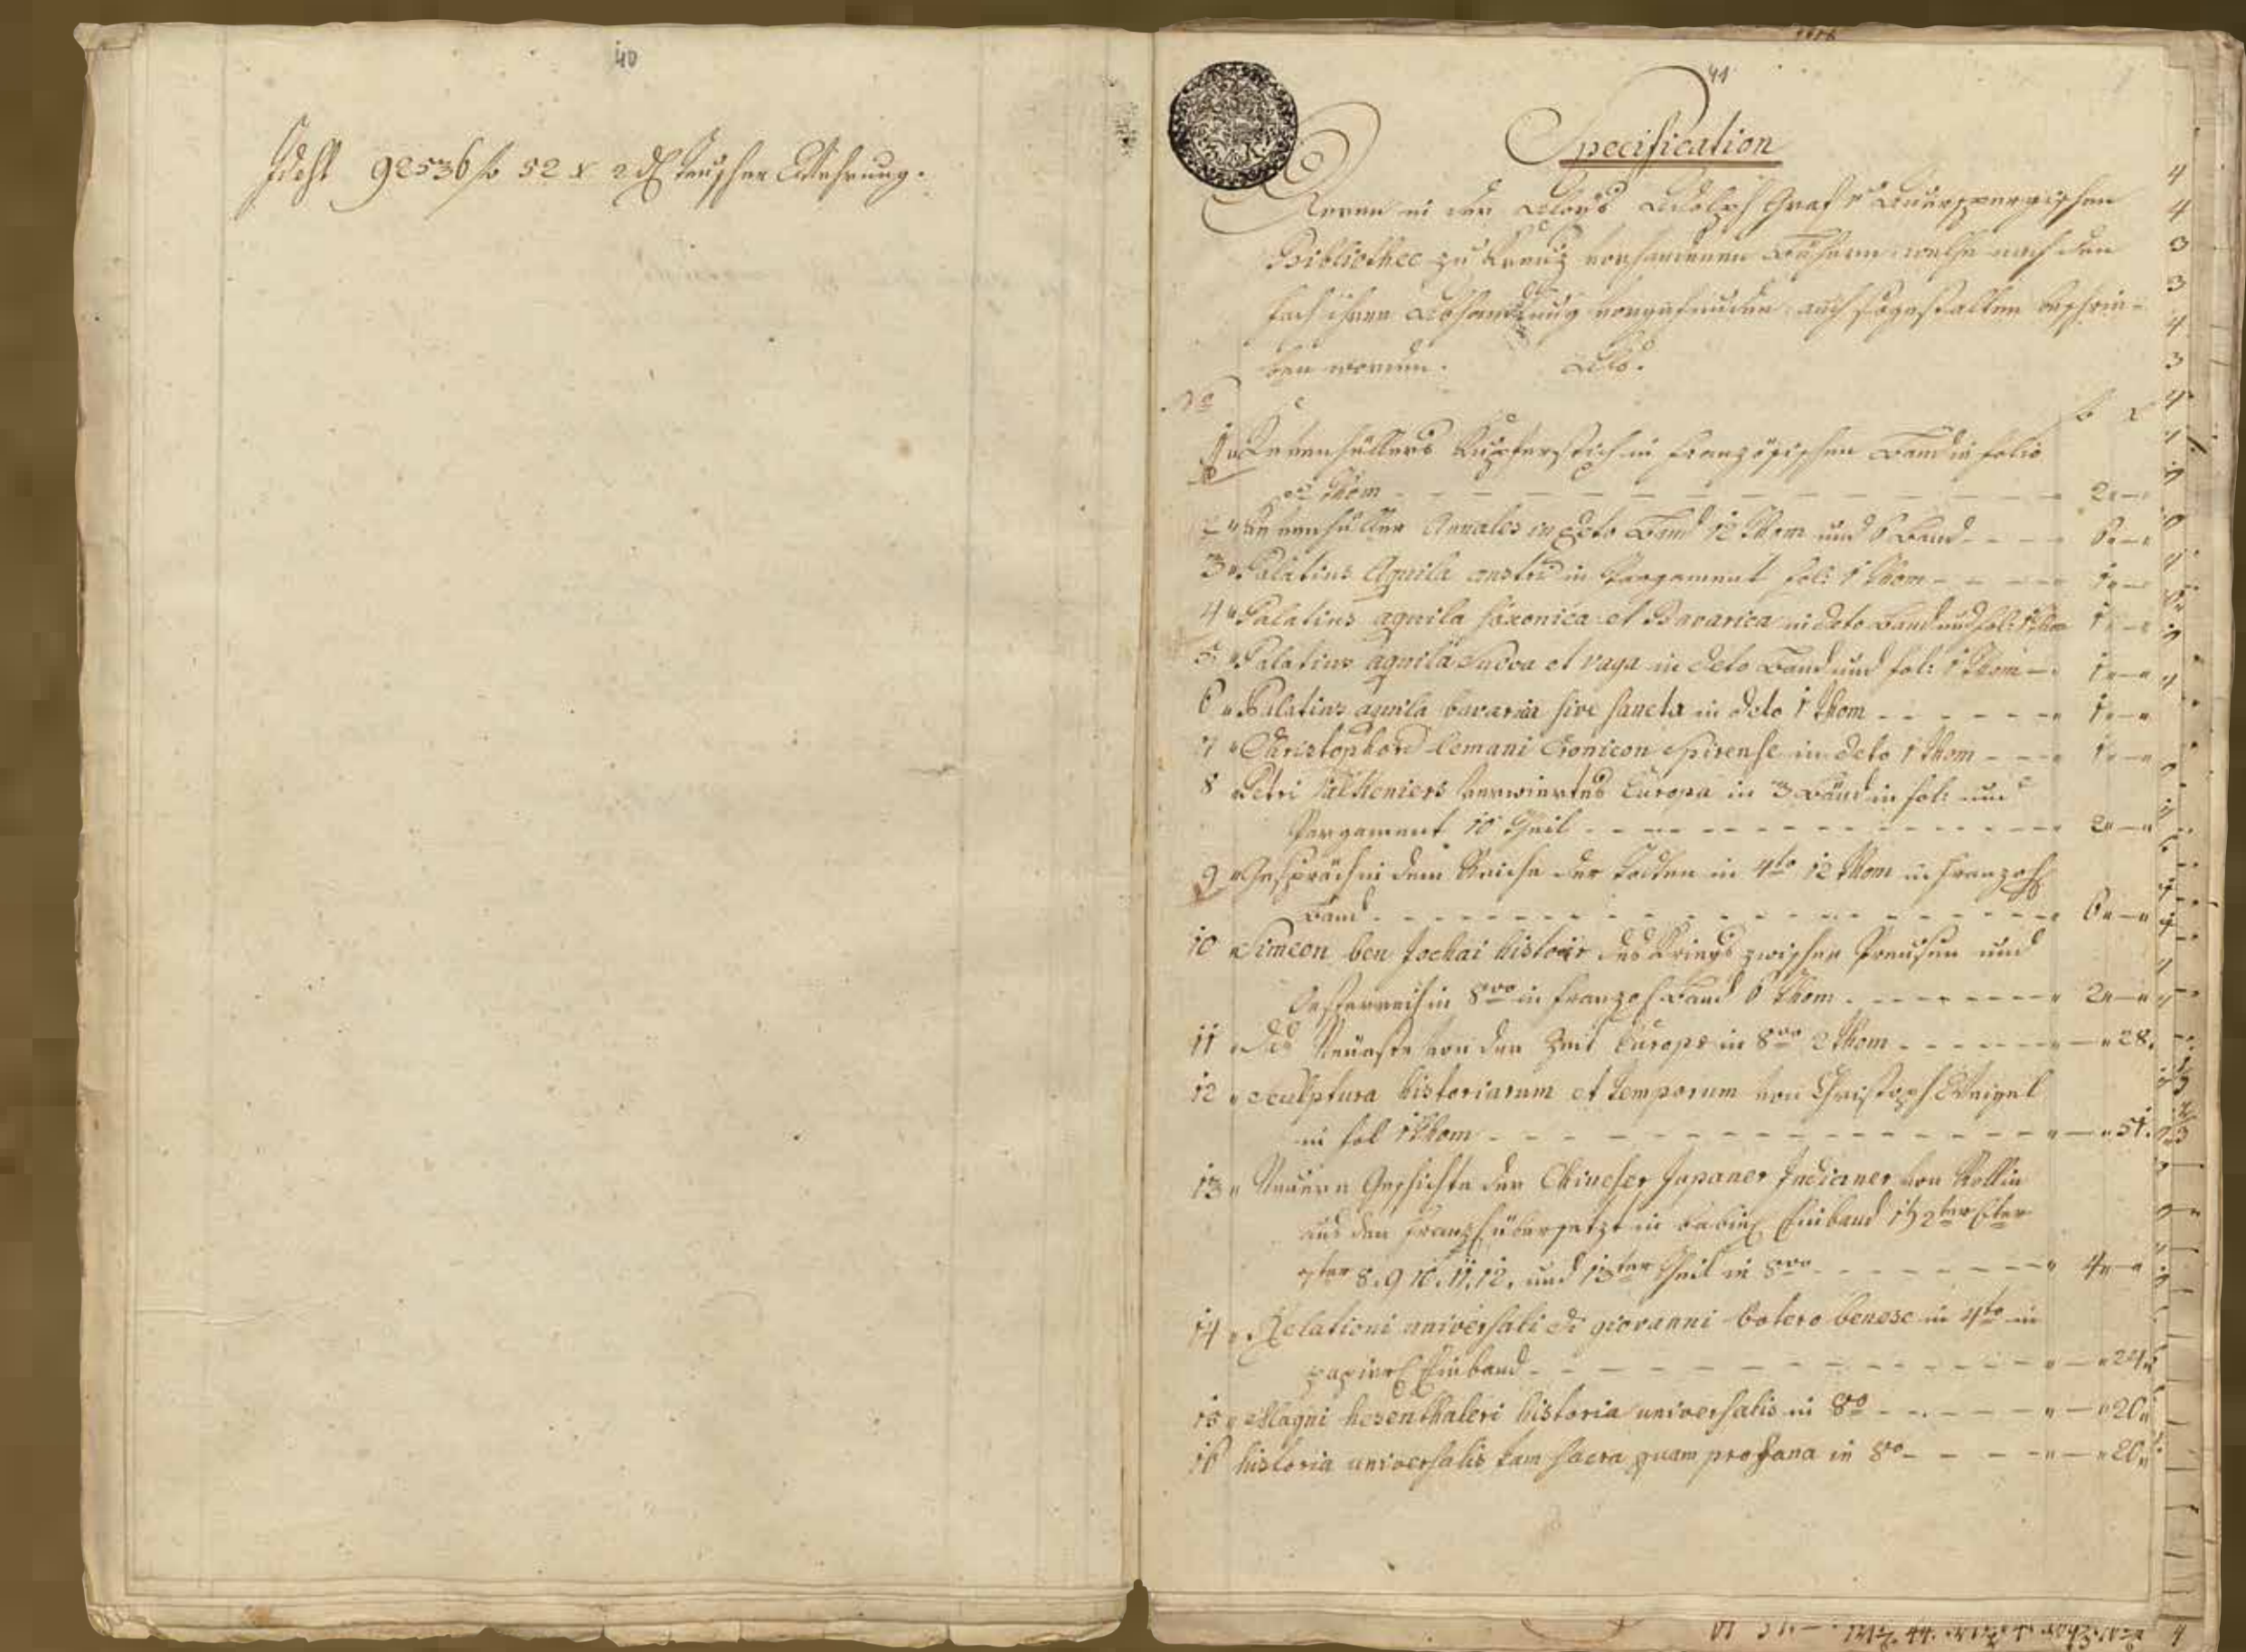 40
Idest 92536 f 52 x 2 d Teutscher Wehrung.
41
Specification
Deren in der Aloys Adolph Graf v. Auerspergischen
Bibliothec zu Kreuz vorhandenen Büchern welche nach den
fach ihrer Abhandlung vorgefunden auch sogestalten beschrie-
ben worden. Als.
No f x
1 Kevenhüllers Kupferstich in französischen Band in folio
2 Thom 2
2 Kevenhüller Annales in deto Band 12 Thom und 6 Band 6
3 Palatius Aquila austri in Pargament fol: 1 Thom 1
4 Palatius aquila saxonica et Bavarica in deto Band und fol: 1 Thom 1
5 Palatius aquila Sueva et vaga in deto Band und fol: 1 Thom 1
6 Palatius aquila bavaria sive sancta in deto 1 Thom 1
7 Christophori lemani Cronicon Spirense in deto 1 Thom 1
8 Petri Valkeniers verwirrtes Europa in 3 Bänd in fol: und
Pargament 10 Theil 2
9 Gespräch in dem Reiche der Todten in 4to 12 Thom in französ
Band 6
10 Simeon ben Jochai histoir des Kriegs zwischen Preusen und
Oesterreich in 8vo in französ Band 6 Thom 2
11 Das Neueste von der Zeit Europs in 8vo 2 Thom 28
12 Sculptura historiarum et temporum von Christoph Weigel
in fol 1 Thom 51
13 Neuere Geschichte der Chineser Japaner Indianer von Rollin
aus den französ übersetzt in Einband 2ter 6ter
7ter 8. 9. 10. 11. 12. und 13ter Theil in 8vo 4
14 Relationi universali di giovanni botero benese in 4to in
papier Einband 24
15 Magni hesenthaleri historia universalis in 8o 20
16 historia universalis tam sacra quam profana in 8o 20